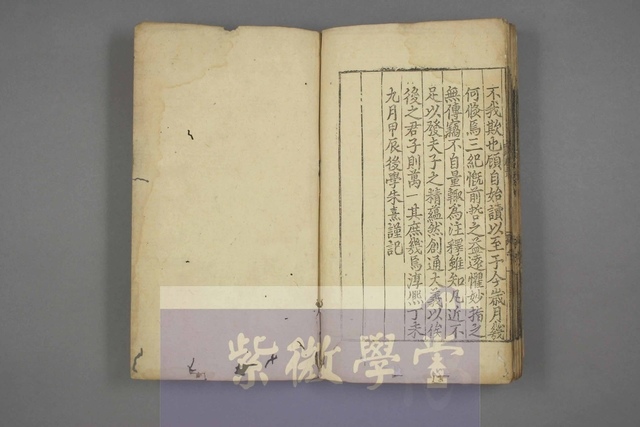 不我欺也顧自始讀以至于今歲月幾
何倏焉三紀慨前哲之益遠懼妙指之
無傳竊不自量輙為注釋雖知凡近不
足以發夫子之精蘊然創通大義以俟
後之君子則萬一其庶幾焉淳熙丁未
九月甲辰後學朱熹謹記
紫微學堂